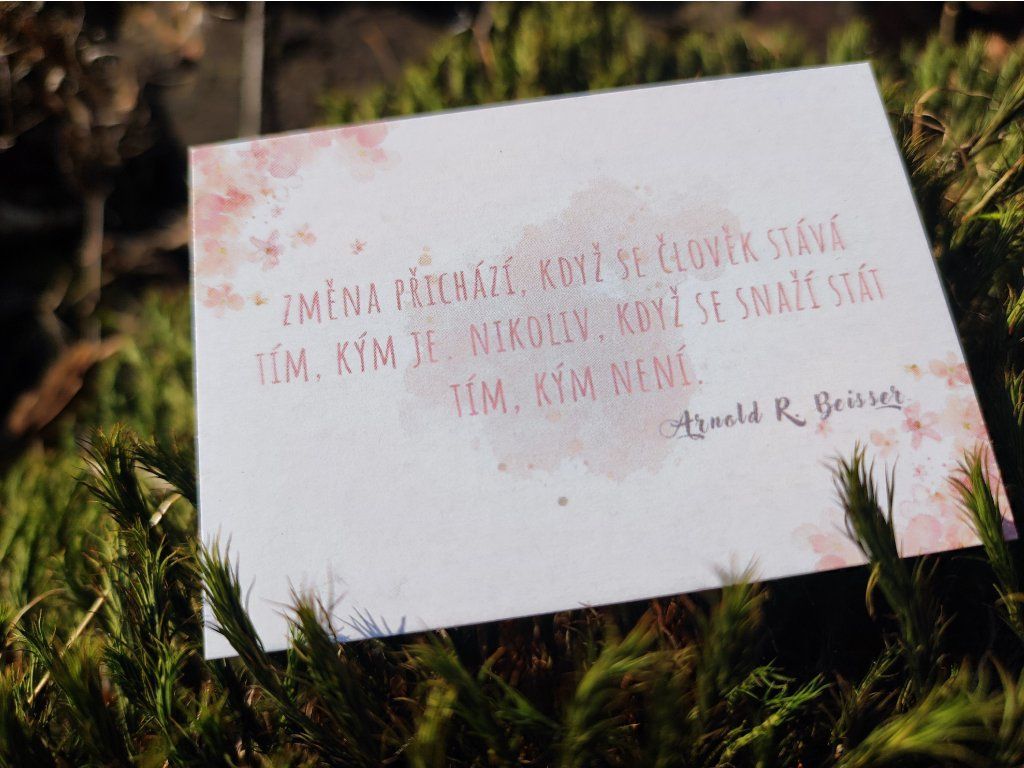 ZMĚNA PŘICHÁZÍ, KDYŽ SE ČLOVĚK STÁVÁ
TÍM, KÝM JE. NIKOLIV, KDYŽ SE SNAŽÍ STÁT
TÍM, KÝM NENÍ.
Arnold R. Beisser